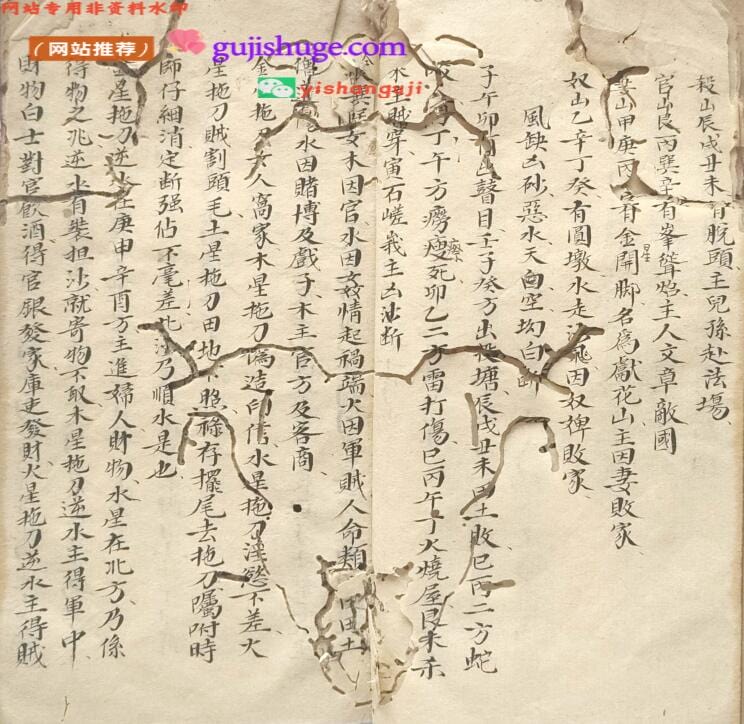 网站专用非资料水印
(网站推荐)
gujishuge.com
yishanguji
殺山辰戌丑未有脫頭主兒孫赴法場
官山艮丙巽辛有峯聳㷔主人文章敵國
妻山甲庚丙
有金星開腳名為獻花山主因妻敗家
奴山乙辛丁癸有圓墩水走
因奴婢敗家
風缺凶砂惡水天自空拗白斷
子午卯酉凶瞽目壬子癸方出投塘辰戌丑未因土敗巳丙二方蛇
丁午方癆瘵瘦死卯乙二方雷打傷巳丙午丁火燒屋艮未杀
水主賊穽寅石嵯峩主凶沙斷
女木因官水因姦情起禍端火因軍賊人命類
因田土
水因賭博及戲子木主官方及客商
金
拖刀女人窩家木星拖刀偽造印信水星拖刀淫慾不差火
星拖刀賊割頭毛土星拖刀田地不
祿存擺尾去拖刀囑咐時
師仔細消定斷強佔不毫差此
乃順水是也
金星拖刀逆水在庚甲辛酉方主進婦人財物水星在北方乃係
得物之兆逆水有裝担沙就寄物不取木星拖刀逆水主得軍中
財物白士對官飲酒得官銀發家庫吏發財火星拖刀逆水主得賊